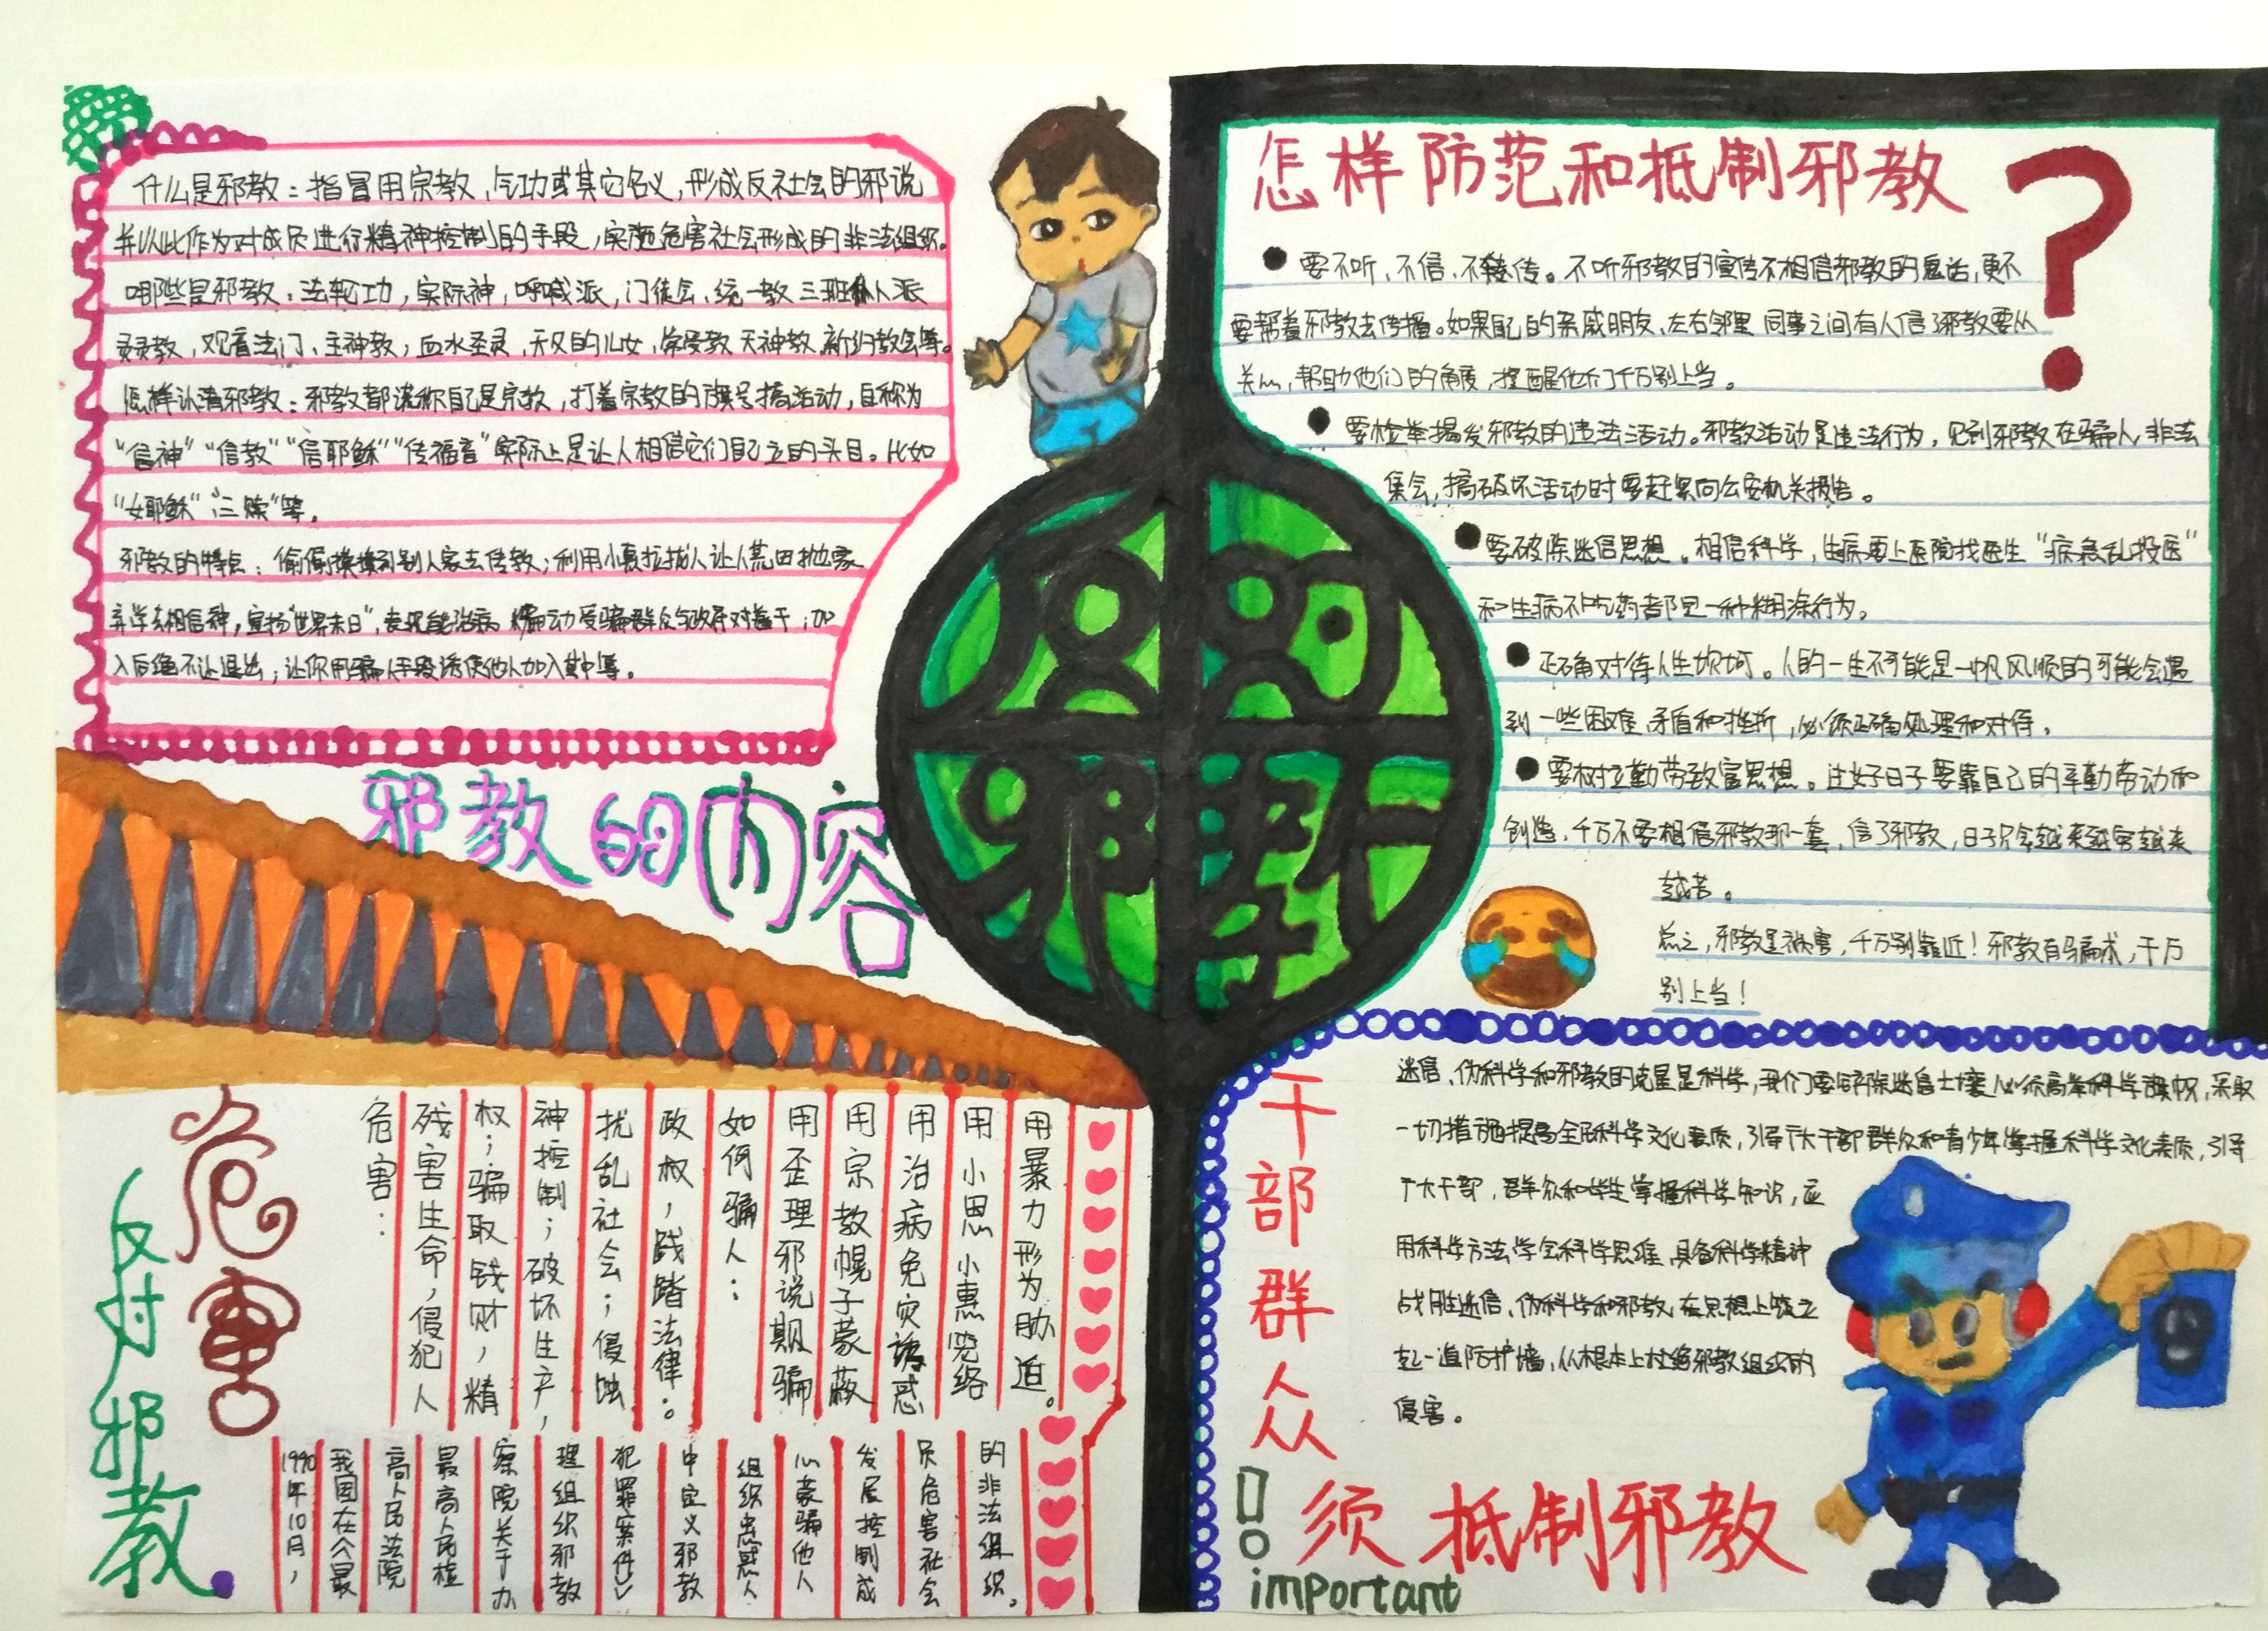 什么是邪教：指冒用宗教，气功或其它名义，形成反社会的邪说
并以此作为对成员进行精神控制的手段，实施危害社会形成的非法组织。
哪些是邪教：法轮功，实际神，呼喊派，门徒会、统一教 三班仆人派
灵灵教，观音法门、主神教，血水圣灵，天父的儿女，常受教 天神教 新约教会等。
怎样认清邪教：邪教都谎称自己是宗教，打着宗教的旗号搞活动，自称为
“信神”“信教”“信耶稣”“传福音”实际上是让人相信它们自己立的头目。比如
“女耶稣”“三赎”等。
邪教的特点：偷偷摸摸到别人家去传教；利用小惠拉拢人让人荒田抛家
弃学去相信神，宣扬“世界末日”，表现能治病 煽动受骗群众与政府对着干；加
入后绝不让退出；让你用骗人手段诱使他人加入其中等。
邪教的内容
危害
反对邪教
危害：
残害生命，侵犯人
权；骗取钱财，精
神控制；破坏生产，
扰乱社会；侵蚀
政权，践踏法律。
如何骗人：
用歪理邪说欺骗
用宗教幌子蒙蔽
用治病免灾诱惑
用小恩小惠笼络
用暴力形为胁迫。
1990年10月，
我国在《最
高人民法院
最高人民检
察院关于办
理组织邪教
犯罪案件》
中定义邪教
组织蛊惑人
心蒙骗他人
发展控制成
员危害社会
的非法组织。
怎样防范和抵制邪教？
要不听、不信、不传。不听邪教的宣传不相信邪教的鬼话，更不
要帮着邪教去传播。如果自己的亲戚朋友、左右邻里 同事之间有人信了邪教要从
关心，帮助他们的角度，提醒他们千万别上当。
要检举揭发邪教的违法活动。邪教活动是违法行为，见到邪教在骗人，非法
集会，搞破坏活动时要赶紧向公安机关报告。
要破除迷信思想。相信科学，生病要上医院找医生“病急乱投医”
和生病不吃药者都是一种糊涂行为。
正确对待人生坎坷。人的一生不可能是一帆风顺的可能会遇
到一些困难 矛盾和挫折，必须正确处理和对待。
要树立勤劳致富思想。过好日子要靠自己的辛勤劳动和
创造，千万不要相信邪教那一套，信了邪教，日子只会越来越穷越来
越苦。
总之，邪教是祸害，千万别靠近！邪教有骗术，千万
别上当！
干部群众！
须抵制邪教
important
迷信、伪科学和邪教的克星是科学，我们要铲除迷信土壤 必须高举科学旗帜，采取
一切措施提高全民科学文化素质，引导广大干部群众和青少年掌握科学文化素质，引导
广大干部，群众和学生掌握科学知识，应
用科学方法 学会科学思维 具备科学精神
战胜迷信，伪科学和邪教 在思想上竖立
起一道防护墙，从根本上杜绝邪教组织的
侵害。